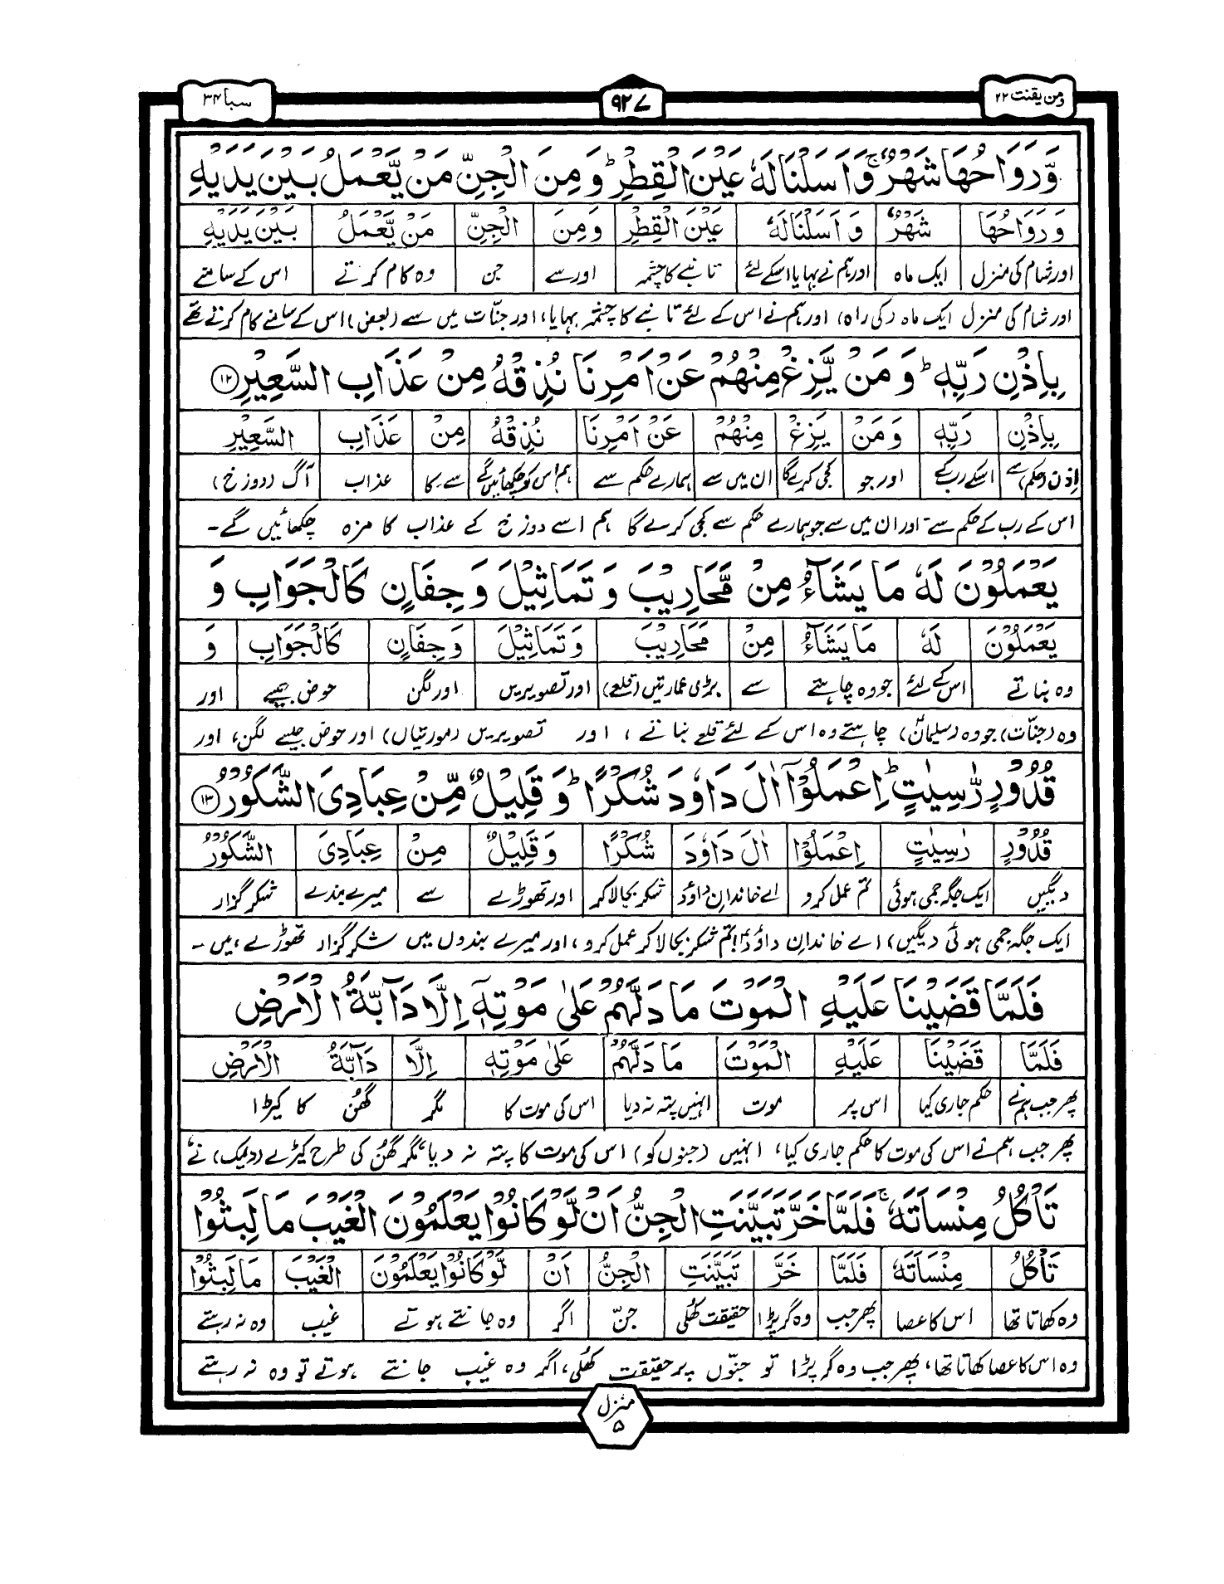 ومن یقنت ۲۲
۹۲۷
سبا ۳۴
وَّرَوَاحُهَا شَهْرٌ ۚ وَاَسَلْنَا لَهٗ عَيْنَ الْقِطْرِ ؕ وَمِنَ الْجِنِّ مَنْ يَّعْمَلُ بَيْنَ يَدَيْهِ
وَرَوَاحُهَا شَهْرٌ وَاَسَلْنَا لَهٗ عَيْنَ الْقِطْرِ وَمِنَ الْجِنِّ مَنْ يَّعْمَلُ بَيْنَ يَدَيْهِ
اور شام کی منزل ایک ماہ اور ہم نے بہایا اسکے لئے تانبے کا چشمہ اور سے جن وہ کام کرتے اس کے سامنے
اور شام کی منزل ایک ماہ (کی راہ) اور ہم نے اس کے لئے تانبے کا چشمہ بہایا، اور جنّات میں سے (بعض) اس کے سامنے کام کرتے تھے
بِاِذْنِ رَبِّهٖ ؕ وَمَنْ يَّزِغْ مِنْهُمْ عَنْ اَمْرِنَا نُذِقْهُ مِنْ عَذَابِ السَّعِيْرِ ۱۲
بِاِذْنِ رَبِّهٖ وَمَنْ يَزِغْ مِنْهُمْ عَنْ اَمْرِنَا نُذِقْهُ مِنْ عَذَابِ السَّعِيْرِ
اذن (حکم) سے اسکے رب کے اور جو کجی کریگا ان میں سے ہمارے حکم سے ہم اس کو چکھائیں گے سے ۔ کا عذاب آگ (دوزخ)
اس کے رب کے حکم سے ۔ اور ان میں سے جو ہمارے حکم سے کجی کرے گا ہم اسے دوزخ کے عذاب کا مزہ چکھائیں گے ۔
يَعْمَلُوْنَ لَهٗ مَا يَشَآءُ مِنْ مَّحَارِيْبَ وَتَمَاثِيْلَ وَجِفَانٍ كَالْجَوَابِ وَ
يَعْمَلُوْنَ لَهٗ مَا يَشَآءُ مِنْ مَّحَارِيْبَ وَتَمَاثِيْلَ وَجِفَانٍ كَالْجَوَابِ وَ
وہ بناتے اس کے لئے جو وہ چاہتے سے بڑی عمارتیں (قلعے) اور تصویریں اور لگن حوض جیسے اور
وہ (جنّات) جو وہ (سلیمانؑ) چاہتے وہ اس کے لئے قلعے بناتے ، اور تصویریں (مورتیاں) اور حوض جیسے لگن، اور
قُدُوْرٍ رّٰسِيٰتٍ ؕ اِعْمَلُوْۤا اٰلَ دَاوٗدَ شُكْرًا ؕ وَقَلِيْلٌ مِّنْ عِبَادِىَ الشَّكُوْرُ ۱۳
قُدُوْرٍ رٰسِيٰتٍ اِعْمَلُوْۤا اٰلَ دَاوٗدَ شُكْرًا وَقَلِيْلٌ مِنْ عِبَادِىَ الشَّكُوْرُ
دیگیں ایک جگہ جمی ہوئی تم عمل کرو اے خاندانِ داؤدؑ شکر بجا لا کر اور تھوڑے سے میرے بندے شکر گزار
ایک جگہ جمی ہوئی دیگیں، اے خاندانِ داؤدؑ! تم شکر بجا لا کر عمل کرو ، اور میرے بندوں میں شکر گزار تھوڑے ہیں ۔
فَلَمَّا قَضَيْنَا عَلَيْهِ الْمَوْتَ مَا دَلَّهُمْ عَلٰى مَوْتِهٖۤ اِلَّا دَآبَّةُ الْاَرْضِ
فَلَمَّا قَضَيْنَا عَلَيْهِ الْمَوْتَ مَا دَلَّهُمْ عَلٰى مَوْتِهٖۤ اِلَّا دَآبَّةُ الْاَرْضِ
پھر جب ہم نے حکم جاری کیا اس پر موت انہیں پتہ نہ دیا اس کی موت کا مگر گھُن کا کیڑا
پھر جب ہم نے اس کی موت کا حکم جاری کیا، انہیں (جنوں کو) اس کی موت کا پتہ نہ دیا مگر گھُن کی طرح کیڑے (دیمک) نے
تَاْكُلُ مِنْسَاَتَهٗ ۚ فَلَمَّا خَرَّ تَبَيَّنَتِ الْجِنُّ اَنْ لَّوْ كَانُوْا يَعْلَمُوْنَ الْغَيْبَ مَا لَبِثُوْا
تَاْكُلُ مِنْسَاَتَهٗ فَلَمَّا خَرَّ تَبَيَّنَتِ الْجِنُّ اَنْ لَّوْ كَانُوْا يَعْلَمُوْنَ الْغَيْبَ مَا لَبِثُوْا
وہ کھاتا تھا اس کا عصا پھر جب وہ گر پڑا حقیقت کھُلی جنّ اگر وہ جانتے ہوتے غیب وہ نہ رہتے
وہ اس کا عصا کھاتا تھا، پھر جب وہ گر پڑا تو جنّوں پر حقیقت کھُلی، اگر وہ غیب جانتے ہوتے تو وہ نہ رہتے
منزل
۵